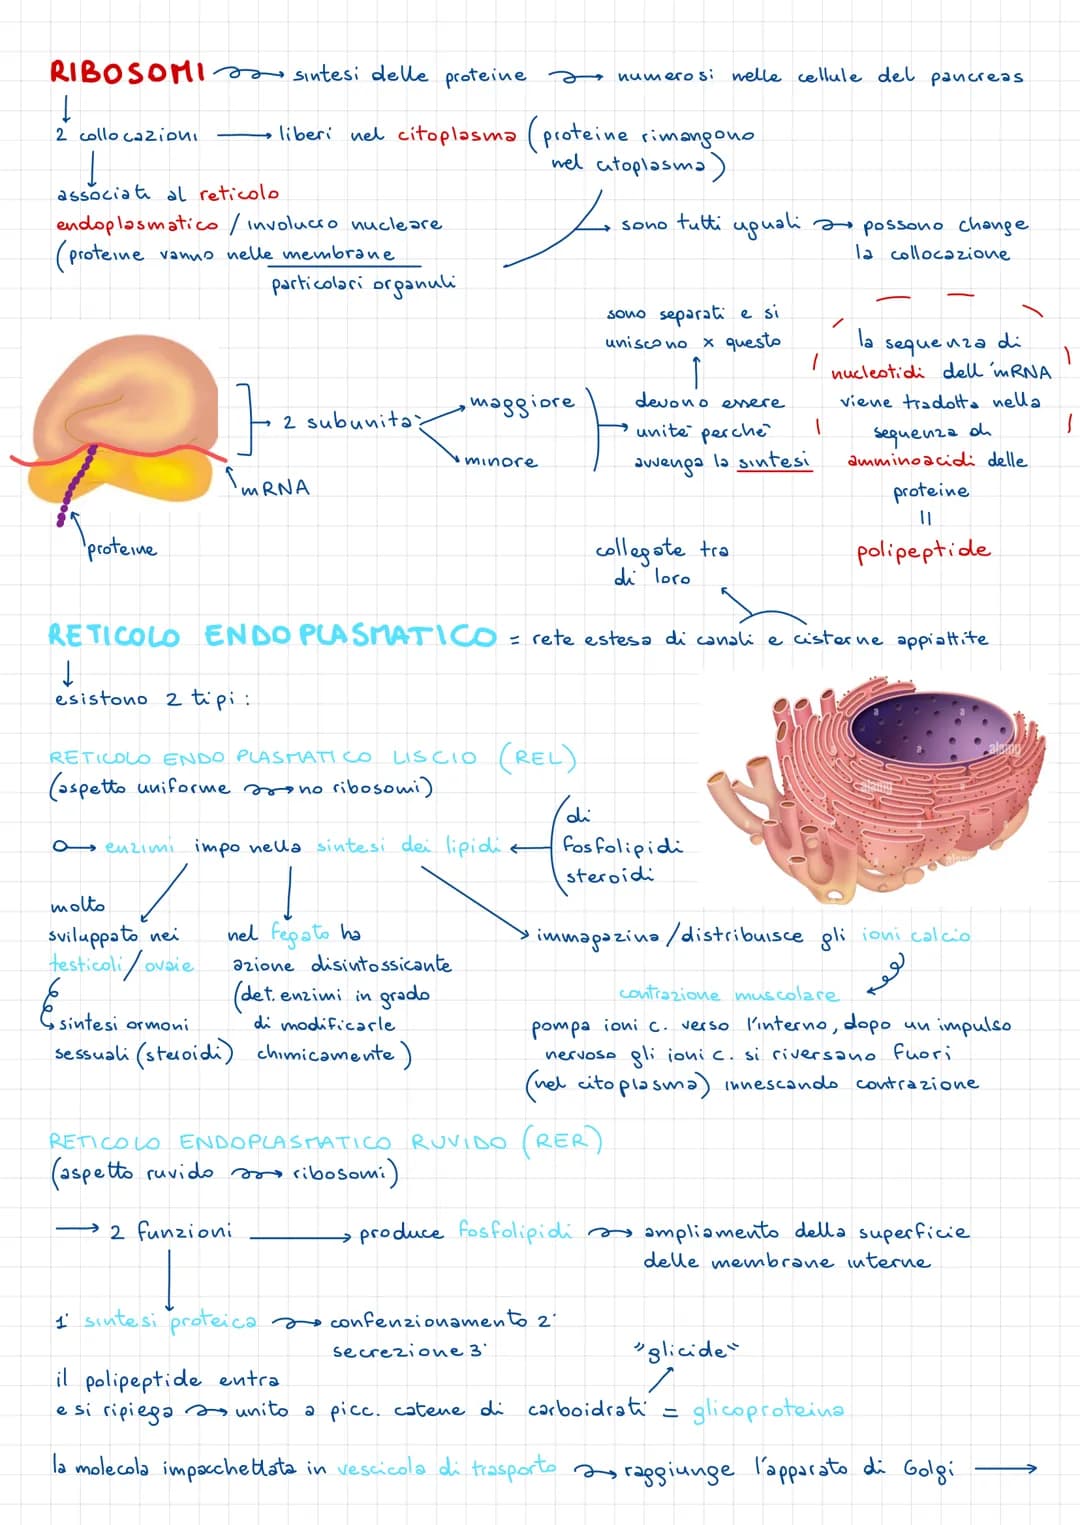 RIBOSOMI → sintesi delle proteine → numerosi nelle cellule del pancreas
2 collocazioni → liberi nel citoplasma (proteine rimangono
nel citoplasma)
associati al reticolo
endoplasmatico / involucro nucleare
(proteine vanno nelle membrane
particolari organuli
sono tutti uguali → possono change
la collocazione
sono separati e si
uniscono x questo
2 subunità:
maggiore
minore
devono essere
unite perché
avvenga la sintesi
la sequenza di
nucleotidi dell'mRNA
viene tradotta nella
sequenza di
amminoacidi delle
proteine
=
polipeptide
mRNA
proteine
collegate tra
di loro
RETICOLO ENDOPLASMATICO = rete estesa di canali e cisterne appiattite
esistono 2 tipi:
RETICOLO ENDOPLASMATICO LISCIO (REL)
(aspetto uniforme → no ribosomi)
→ enzimi impo nella sintesi dei lipidi ←
di
fosfolipidi
steroidi
a
a
a
a
alamy
alamy
alamy
molto
sviluppato nei
testicoli/ovaie
sintesi ormoni
sessuali (steroidi)
nel fegato ha
azione disintossicante
(det. enzimi in grado
di modificarle
chimicamente)
immagazina/distribuisce gli ioni calcio
contrazione muscolare
pompa ioni c. verso l'interno, dopo un impulso
nervoso gli ioni c. si riversano fuori
(nel citoplasma) innescando contrazione
RETICOLO ENDOPLASMATICO RUVIDO (RER)
(aspetto ruvido → ribosomi)
→ 2 funzioni → produce fosfolipidi → ampliamento della superficie
delle membrane interne
1° sintesi proteica → confenzionamento 2°
secrezione 3°
"glicide"
il polipeptide entra
e si ripiega → unito a picc. catene di carboidrati = glicoproteina
la molecola impacchettata in vescicola di trasporto → raggiunge l'apparato di Golgi →